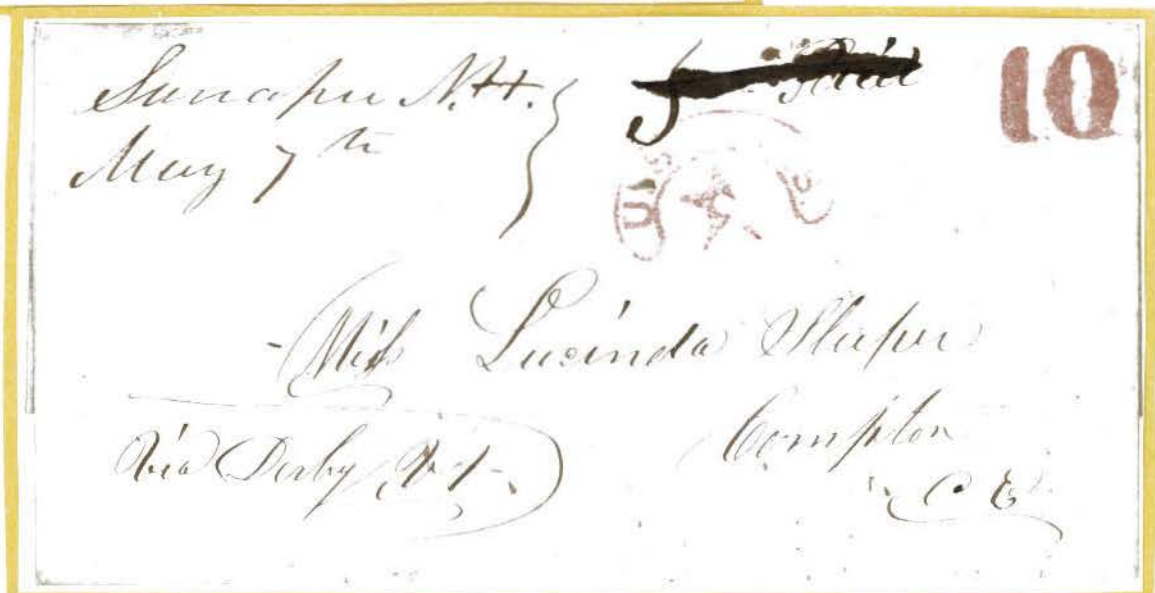 Sunapee N.H.
May 7th
Paid
10
U. S.
Miss Lucinda Sleeper
Compton
C. E.
Via Derby, Vt.